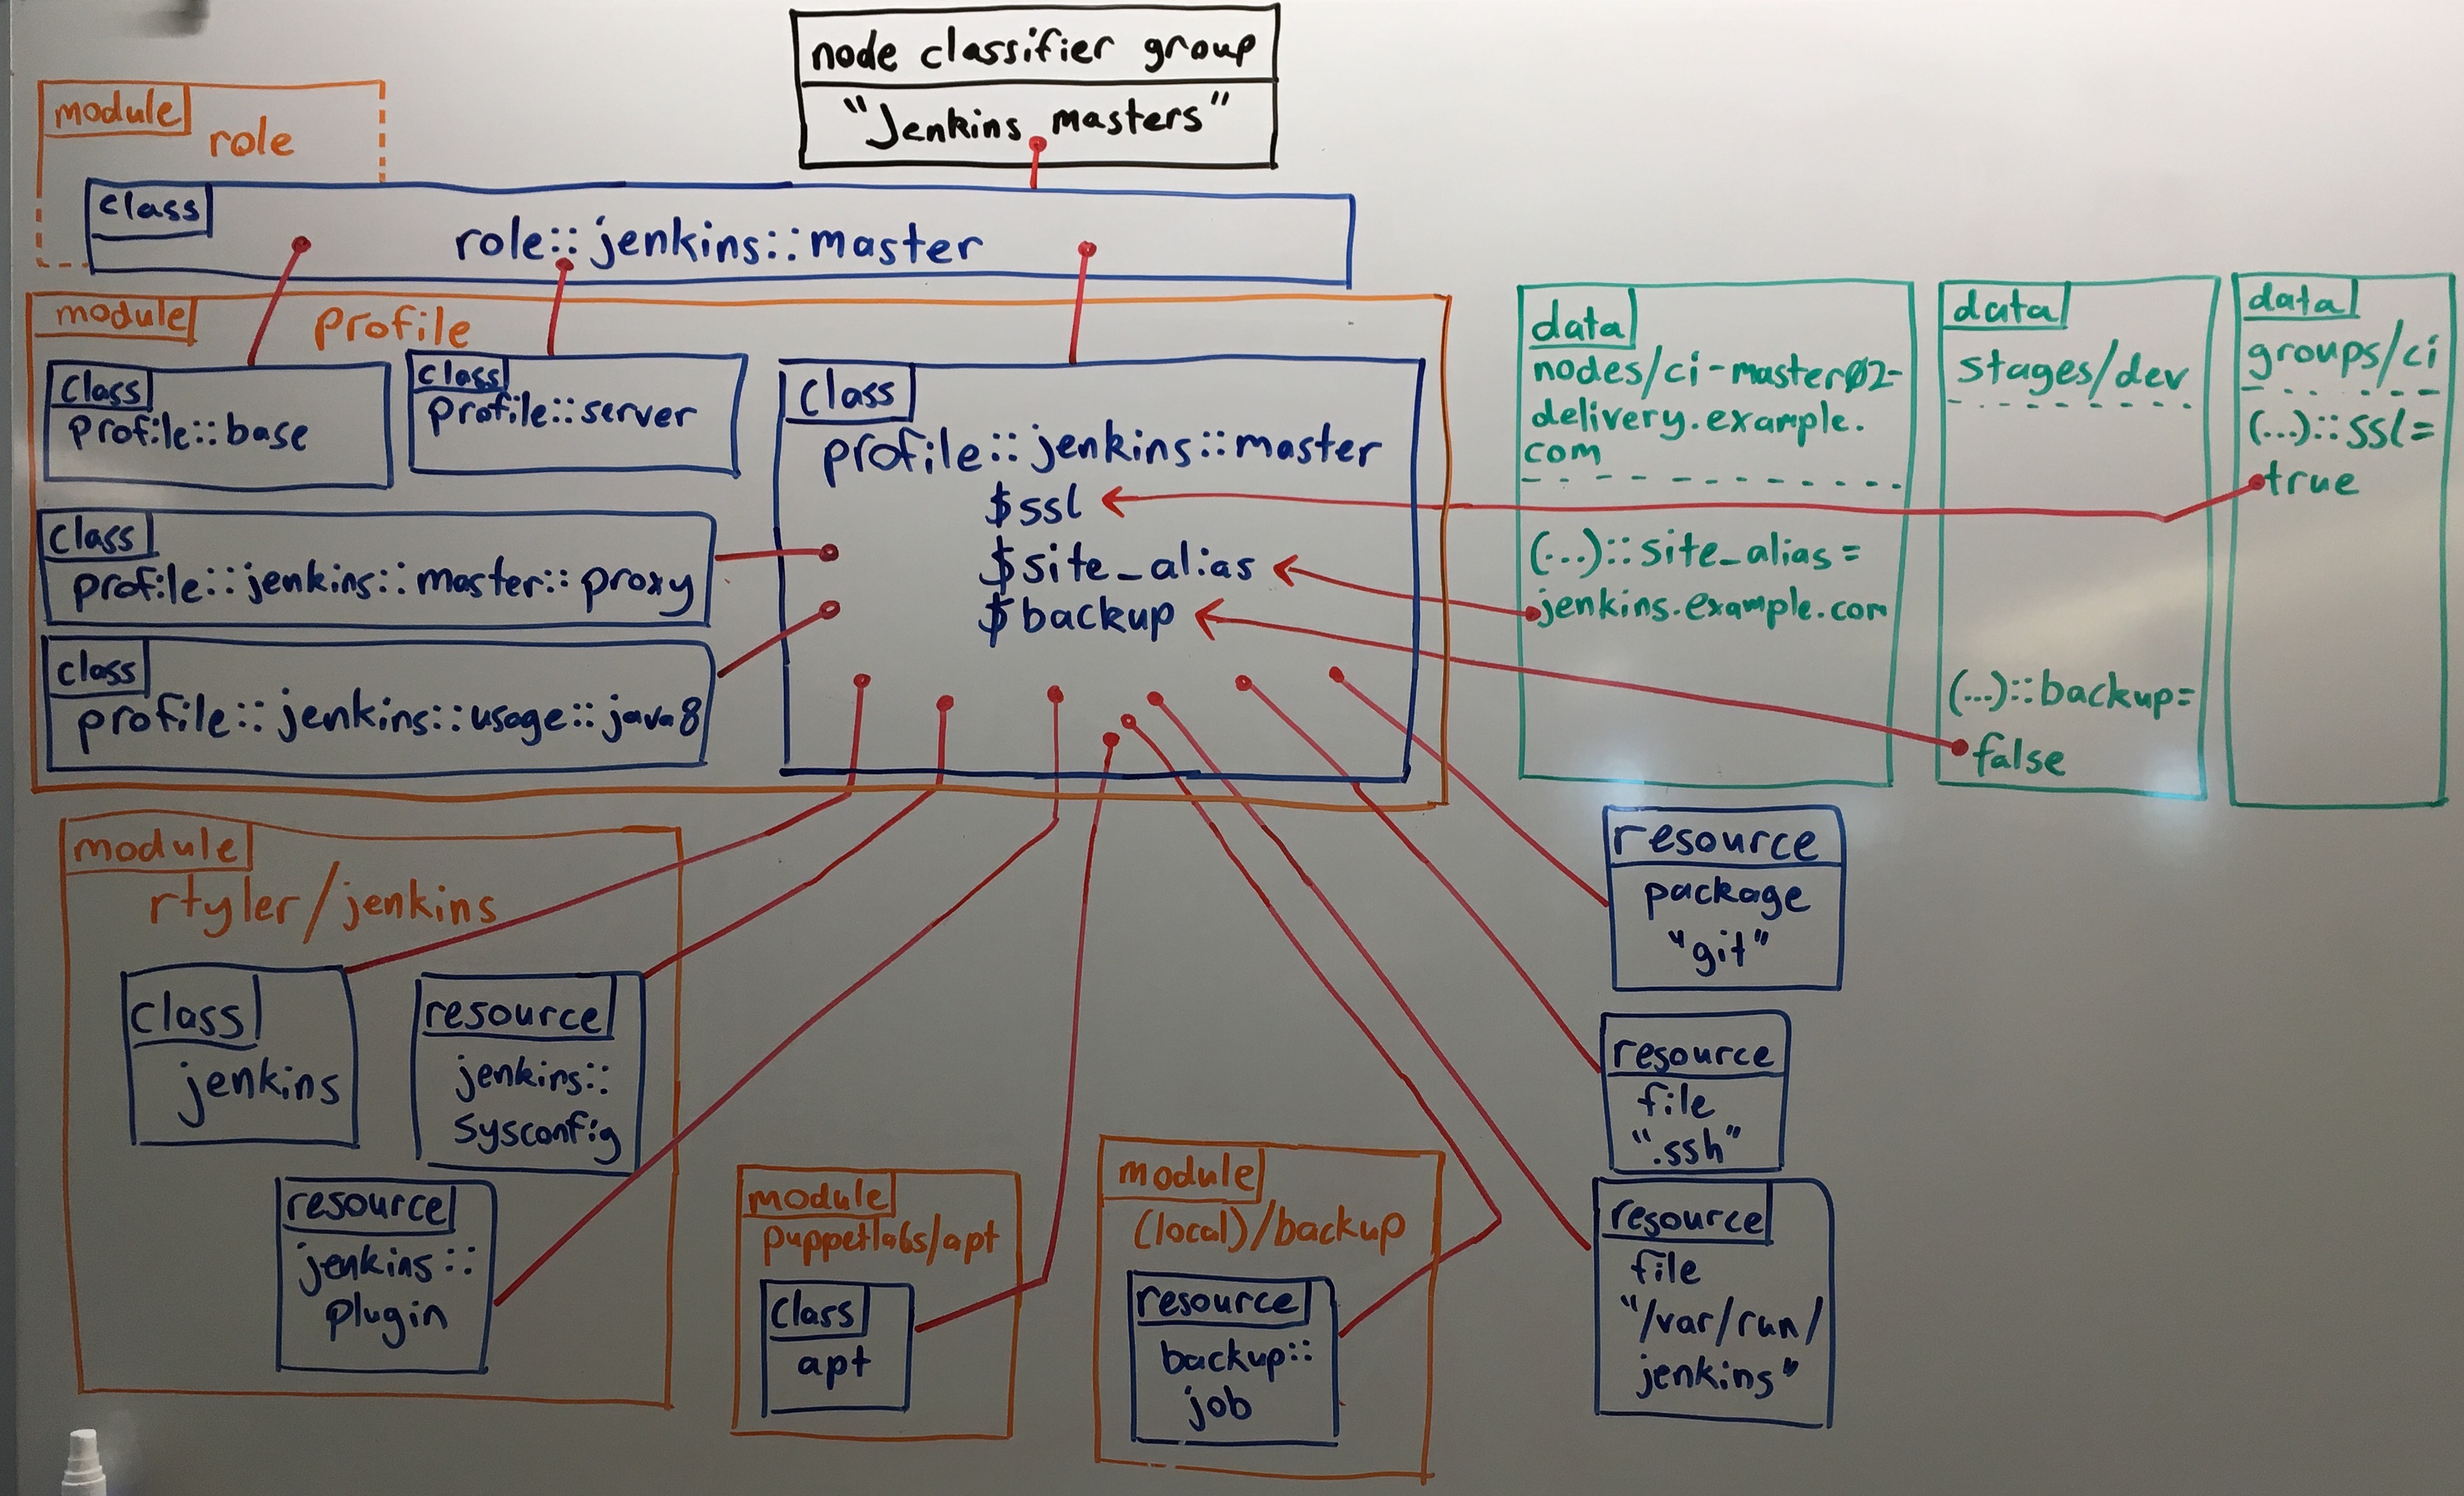 node classifier group
"Jenkins masters"
module
role
class
role::jenkins::master
module
profile
class
profile::base
class
profile::server
class
profile::jenkins::master::proxy
class
profile::jenkins::usage::java8
class
profile::jenkins::master
$ssl
$site_alias
$backup
data
nodes/ci-master02-
delivery.example.
com
(...)::site_alias=
jenkins.example.com
data
stages/dev
(...)::backup=
false
data
groups/ci
(...)::ssl=
true
module
rtyler/jenkins
class
jenkins
resource
jenkins::
sysconfig
resource
jenkins::
plugin
module
puppetlabs/apt
class
apt
module
(local)/backup
resource
backup::
job
resource
package
"git"
resource
file
".ssh"
resource
file
"/var/run/
jenkins"